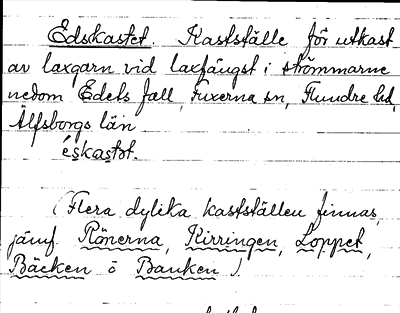 Edskastet. Kastställe för utkast
av laxgarn vid laxfångst i strömmarne
nedom Edets fall, Fuxerna sn, Flundre hd,
Älfsborgs län
éskastot.
(Flera dylika kastställen finnas,
jämf. Rönerna, Kirringen, Loppet,
Bäcken o Banken).